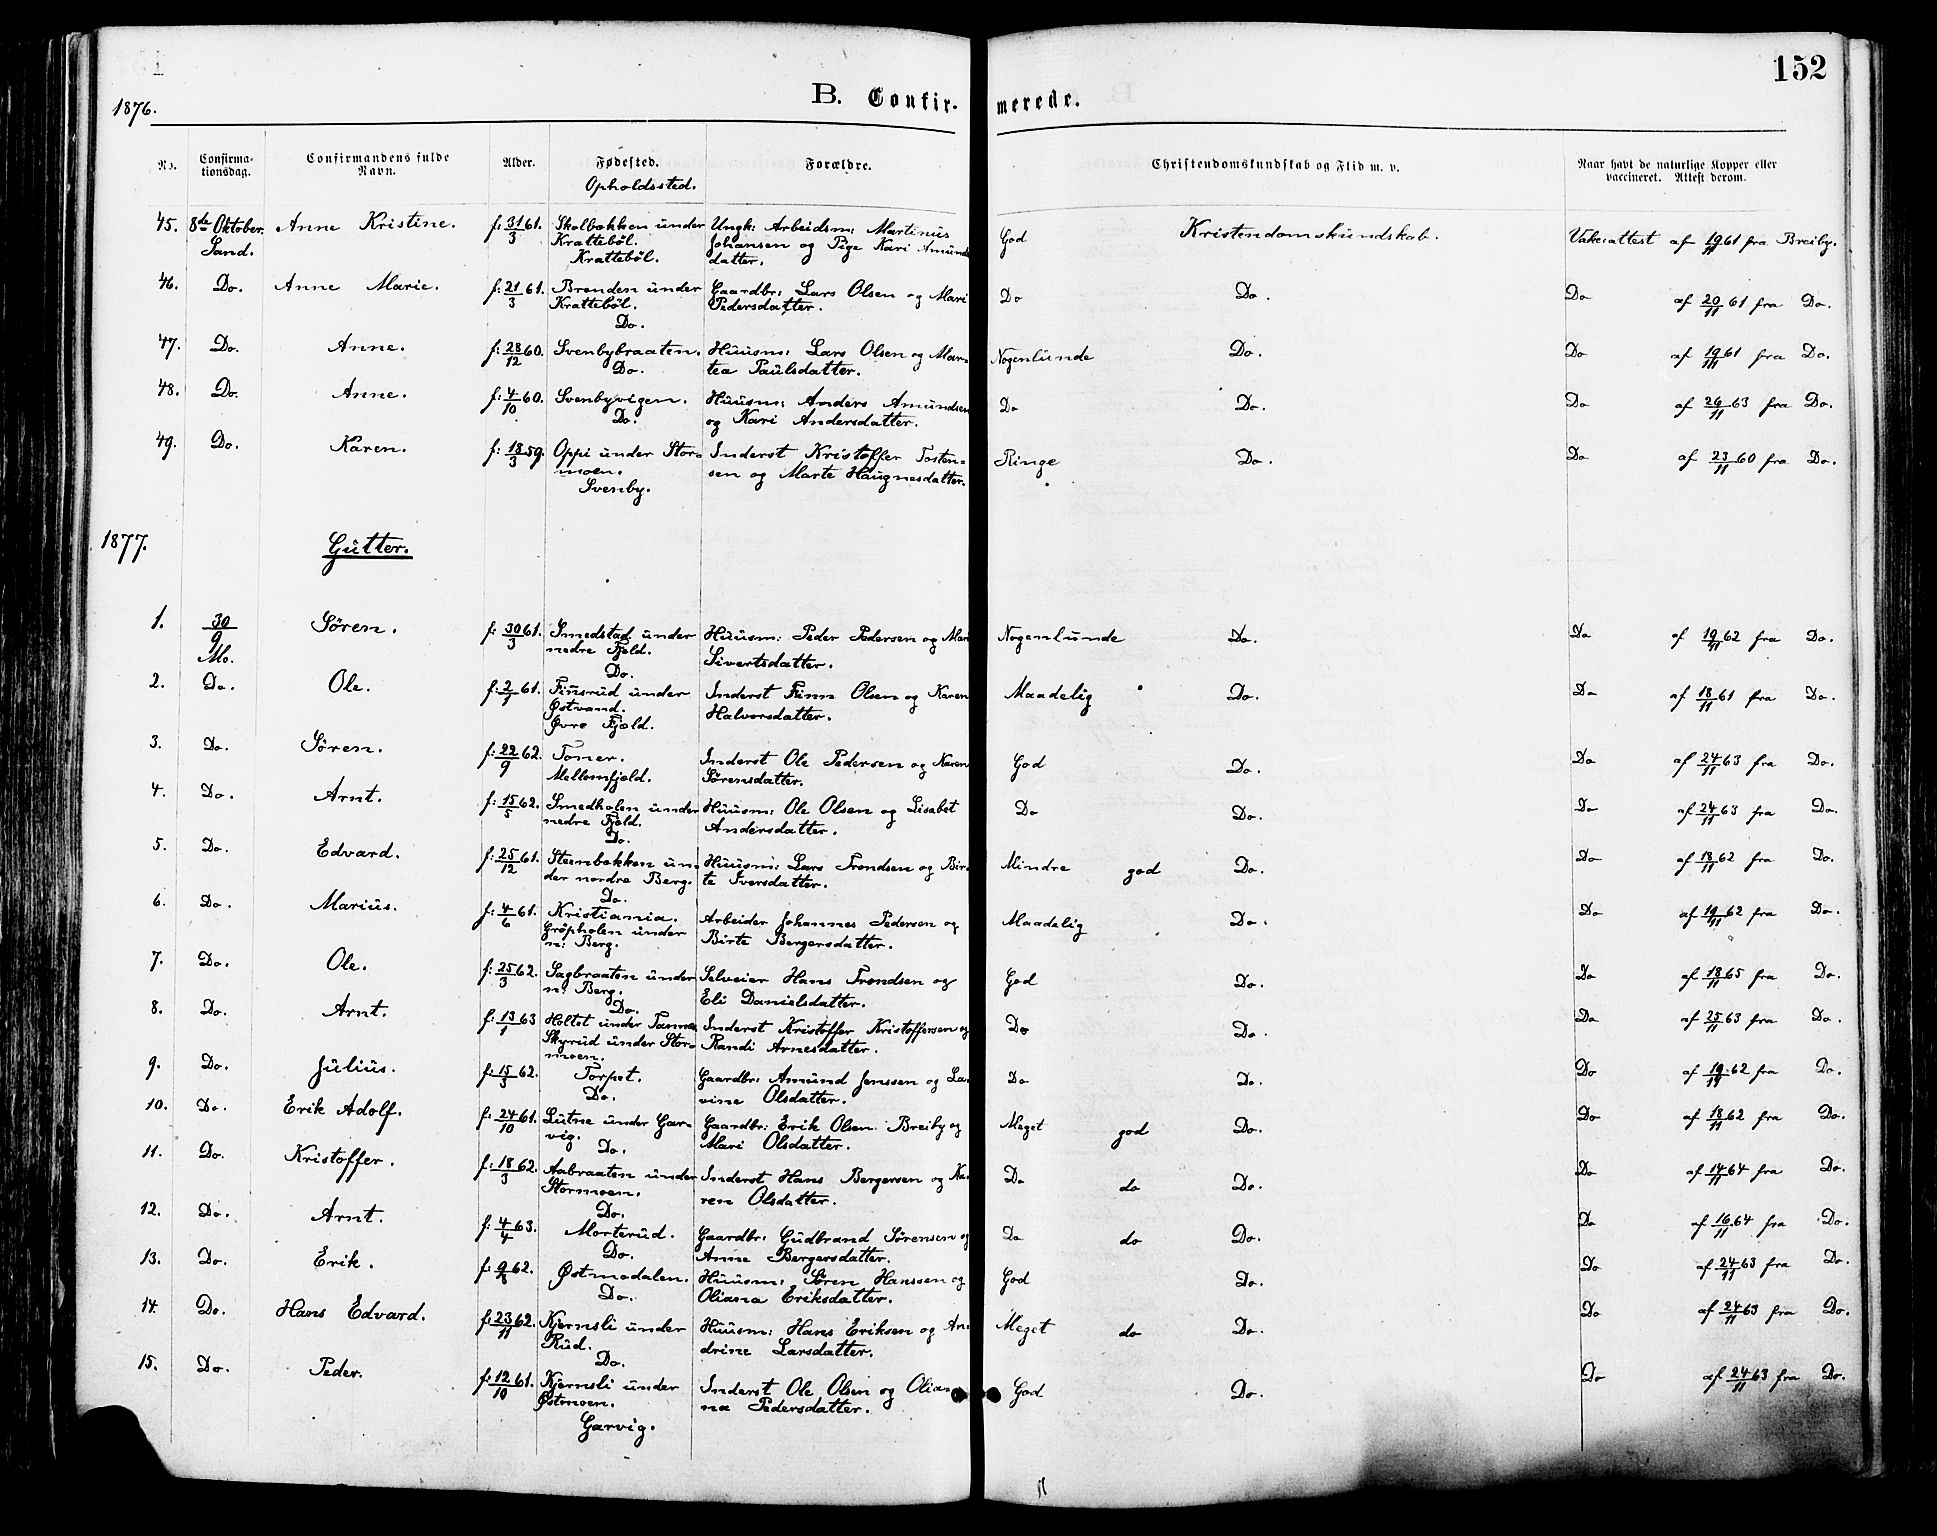 152
1876.
B. Confir- merede.
No. Confirma-tionsdag. Confirmandens fulde Navn. Alder. Fødested. Opholdssted. Forældre. Christendomskundskab og Flid m. v. Naar havt de naturlige Kopper eller vaccineret. Attest derom.
45. 8de Oktober. Anne Kristine. f: 31/3 61. Skolbakken under Ungk: Arbeidsm: Martinus God Kristendomskundskab. Vakc:attest af 19/11 61 fra Breiby.
Sand. Krattebøl. Johansen og Pige Kari Amunds
Krattebøl. datter.
46. Do. Anne Marie. f: 21/3 61. Brenden under Gaardbr: Lars Olsen og Mari Do Do. Do af 20/11 61 fra Do.
Krattebøl. Pedersdatter.
Do.
47. Do. Anne. f: 28/12 60. Svenbybraaten. Huusm: Lars Olsen og Mar- Nogenlunde Do. Do af 19/11 61 fra Do.
Do. tea Paulsdatter.
48. Do. Anne. f: 4/10 60. Svenbyvigen. Huusm: Anders Amundsen Do Do. Do af 26/11 63 fra Do.
Do. og Kari Andersdatter.
49. Do. Karen. f: 18/3 59. Oppi under Stor- Inderst Kristoffer Tosten- Ringe Do. Do af 23/11 60 fra Do.
moen. sen og Marte Haugnesdatter.
Svenby.
1877. Gutter.
1. 30/9 Søren. f: 30/3 61. Smedstad under Huusm: Peder Pedersen og Mari Nogenlunde Do. Do af 19/11 62 fra Do.
Mo. nedre Fjeld. Sivertsdatter.
Do.
2. Do. Ole. f: 2/7 61. Finsrud under Inderst Finn Olsen og Karen Maadelig Do. Do af 18/11 61 fra Do.
Østvand. Halvorsdatter.
Øvre Fjeld.
3. Do. Søren. f: 22/9 62. Tomer. Inderst Ole Pedersen og Karen God Do. Do af 24/11 63 fra Do.
Mellemfjeld. Sørensdatter.
4. Do. Arnt. f: 15/5 62. Smedholen under Huusm: Ole Olsen og Lisabet Do Do. Do af 24/11 63 fra Do.
nedre Fjeld. Andersdatter.
Do.
5. Do. Edvard. f: 25/12 61. Steenbakken un- Huusm: Lars Trondsen og Bir- Mindre god Do. Do af 18/11 62 fra Do.
der nordre Berg. te Iversdatter.
Do.
6. Do. Marius. f: 4/6 61. Kristiania. Arbeider Johannes Pedersen og Maadelig Do. Do af 19/11 62 fra Do.
Grøpholen under Birte Bergersdatter.
n: Berg.
7. Do. Ole. f: 25/3 62. Sagbraaten under Selveier Hans Trondsen og God Do. Do af 18/11 65 fra Do.
n: Berg. Eli Danielsdatter.
Do.
8. Do. Arnt. f: 13/1 63 Holtet under Inderst Kristoffer Kristoffersen og Do Do. Do af 25/11 63 fra Do.
Skyrud under Stor- Randi Arnesdatter.
moen.
9. Do. Julius. f: 15/3 62. Torpet. Gaardbr: Amund Jenssen og La- Do Do. Do af 19/11 62 fra Do.
Do. vine Olsdatter.
10. Do. Erik Adolf. f: 24/10 61. Lutne under Gar- Gaardbr: Erik Olsen Breiby og Meget god Do. Do af 18/11 62 fra Do.
vig. Mari Olsdatter.
Do.
11. Do. Kristoffer. f: 18/3 62. Aabraaten under Inderst Hans Bergersen og Ka- Do do Do. Do af 14/11 64 fra Do.
Stormoen. ren Olsdatter.
Do.
12. Do. Arnt. f: 4/4 63. Morterud. Gaardbr: Gudbrand Sørensen og Do do Do. Do af 16/11 64 fra Do.
Do. Anne Bergersdatter.
13. Do. Erik. f: 9/8 62. Østmodalen. Huusm: Søren Hanssen og God Do. Do af 24/11 63 fra Do.
Do. Oliana Eriksdatter.
14 Do. Hans Edvard. f: 23/11 62. Kjernsli under Huusm: Hans Eriksen og An- Meget do Do. Do af 24/11 63 fra Do.
Rud. drine Larsdatter.
Do.
15. Do. Peder. f: 12/10 61. Kjernsli under Inderst Ole Olsen og Olia- God Do. Do af 24/11 63 fra Do.
Østmoen. na Pedersdatter.
Garvig.